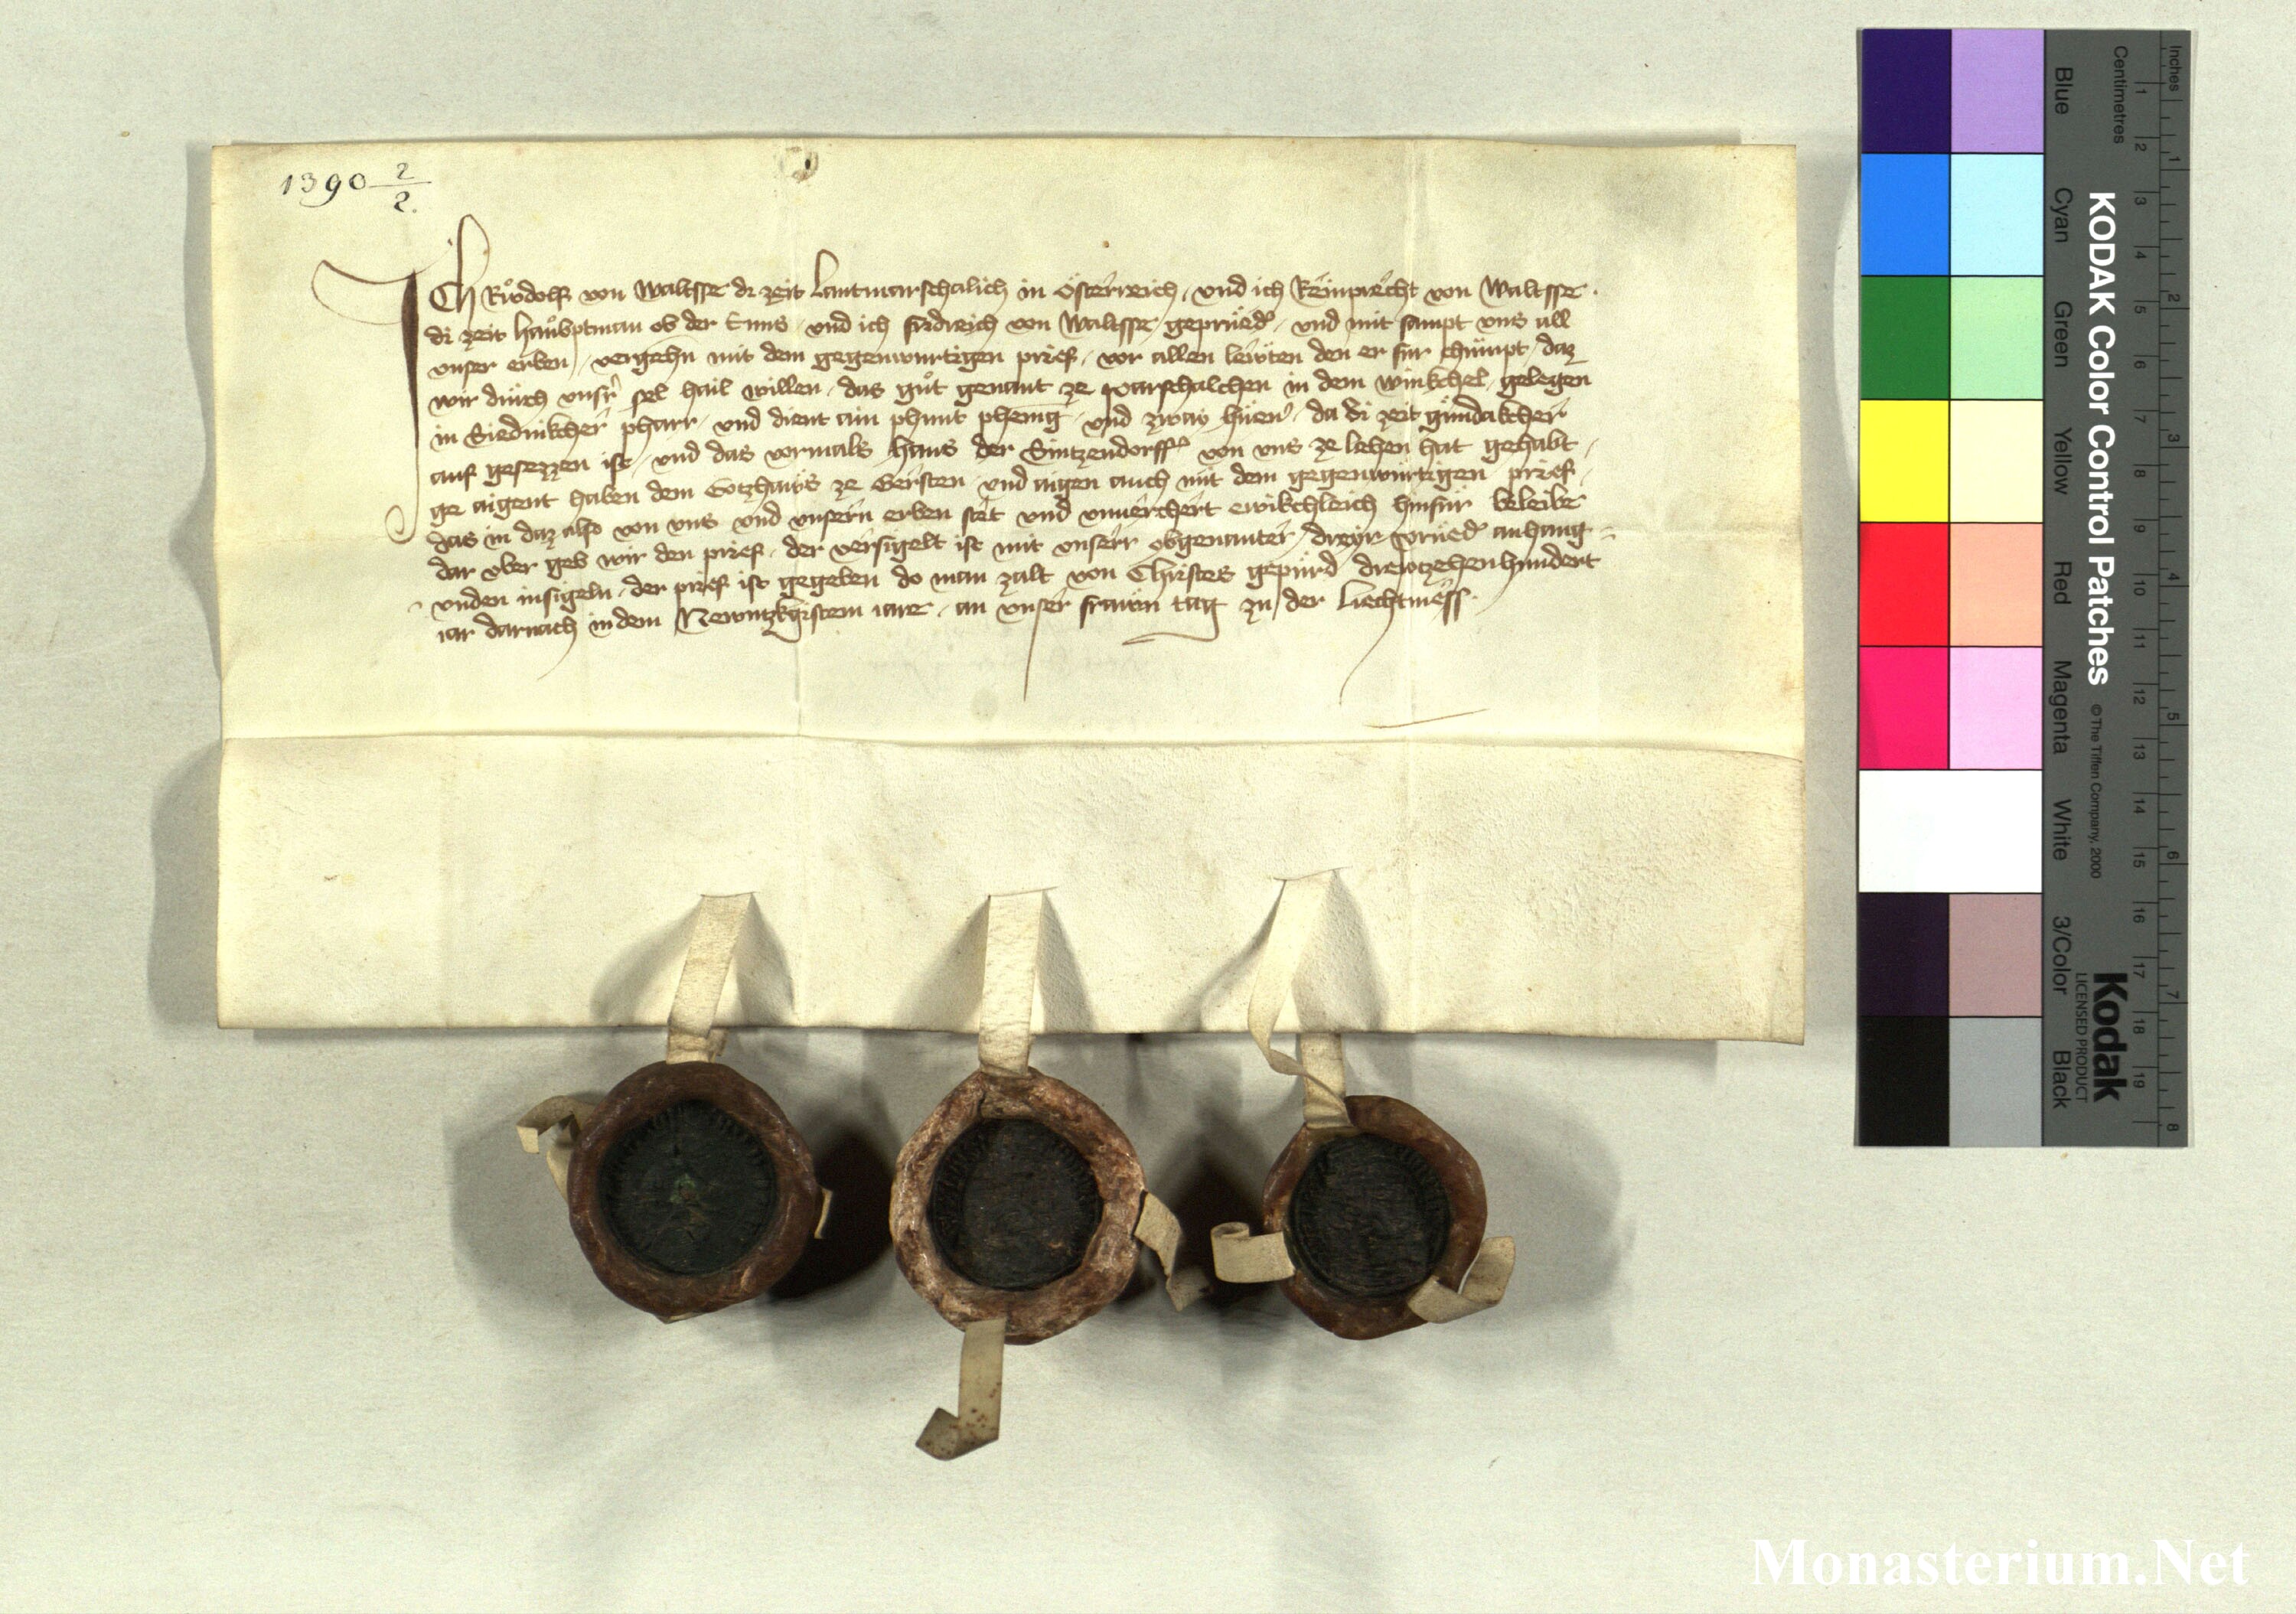 1390 2/2.
Ich Růdolf von Waltsse di zeit Lantmarschalich in Österreich, und ich Reinprecht von Waltsse.
di zeit haůbptman ob der Enns und ich fridreich von Waltsse geprůed' und mit sampt uns all
unser erben, vergehn mit dem gegenwurtigen prief, vor allen lewten den er fur chumpt, daz
wir durch unsr sel hail willen, das gůt genant ze Marschalchen in dem winkchel, gelegen
in Siednikcher pharr, und dient ain phunt phenig, und zway hüen', da di zeit gundakcher
auf gesezzen ist, und das vormals Hans der Sintzendorff' von uns ze lehen hat gehabt,
ge aigent haben dem Gotzhaws ze Gersten und aigen auch mit dem gegenwurtigen prief,
das in daz also von uns und unsern erben stet und unuerchert ewikchleich hinfür beleibe
dar vber geb wir den prief, der versigelt ist mit unserr obgenanter, dreyr prüed' anhang=
unden insigeln, der prief ist gegeben do man zalt von Christes gepurd drewtzehenhundert
iar darnach in dem Newntzkgistem iare, an unser frawn tag zu der Liechtmess.
KODAK Color Control Patches
© The Tiffen Company, 2000
Kodak
LICENSED PRODUCT
Blue Cyan Green Yellow Red Magenta White 3/Color Black
Centimetres 1 2 3 4 5 6 7 8 9 10 11 12 13 14 15 16 17 18 19
Inches 1 2 3 4 5 6 7 8
Monasterium.Net